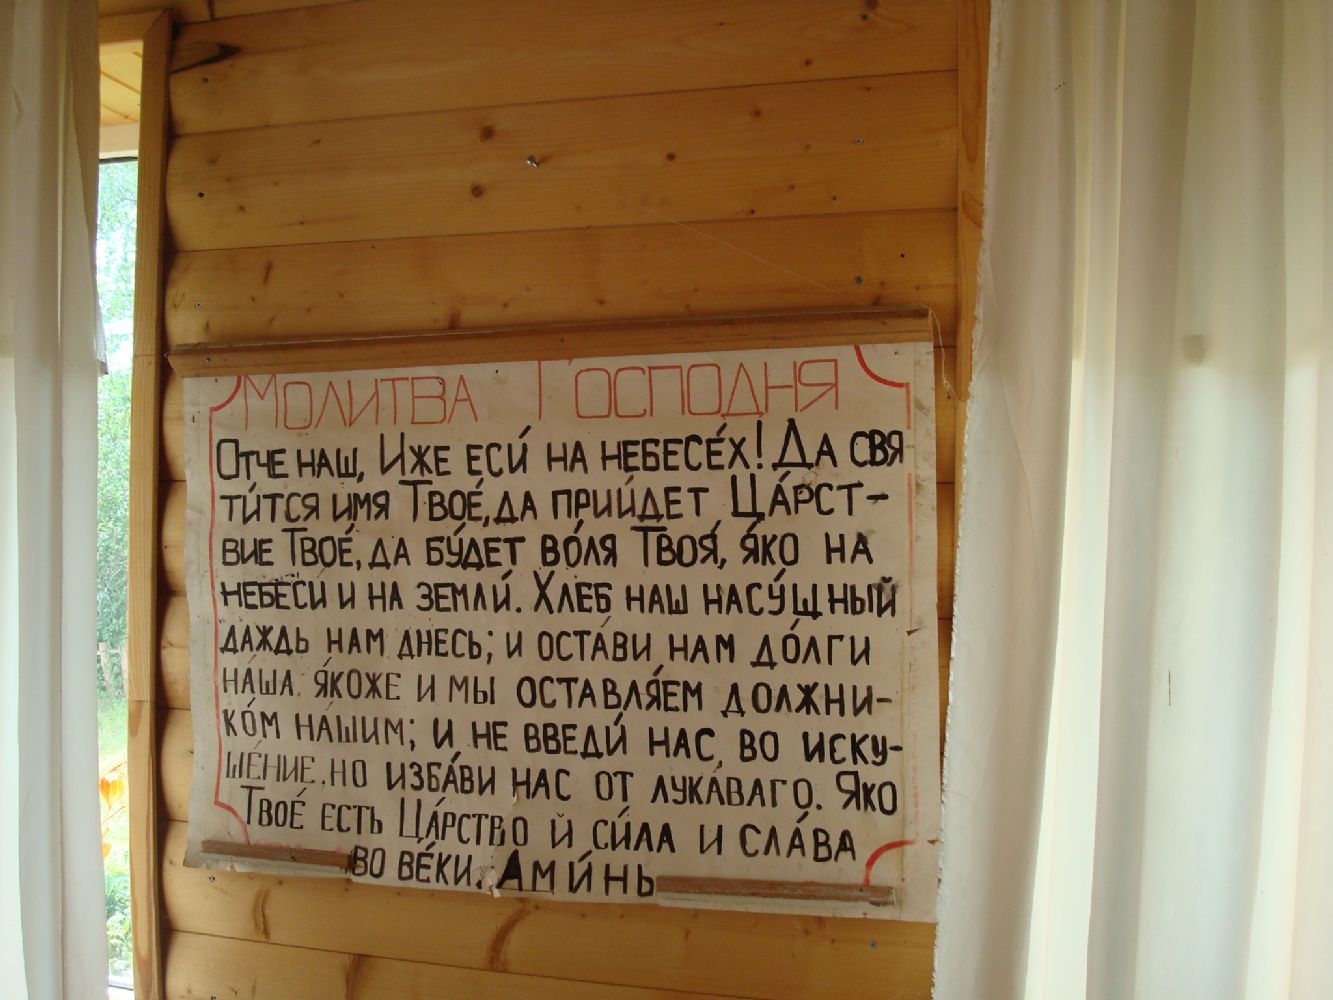 Молитва Господня
Отче наш, Иже еси́ на небесе́х! Да свя
ти́тся имя Твое́, да прии́дет Ца́рст-
вие Твое́, да бу́дет во́ля Твоя́, я́ко на
небеси́ и на земли́. Хлеб наш насу́щный
даждь нам днесь; и оста́ви нам до́лги
на́ша, я́коже и мы оставля́ем должни-
ко́м на́шим; и не введи́ нас, во иску-
ше́ние, но изба́ви нас от лука́ваго. Яко
Твое́ есть Ца́рство й си́ла и сла́ва
во ве́ки. Ами́нь